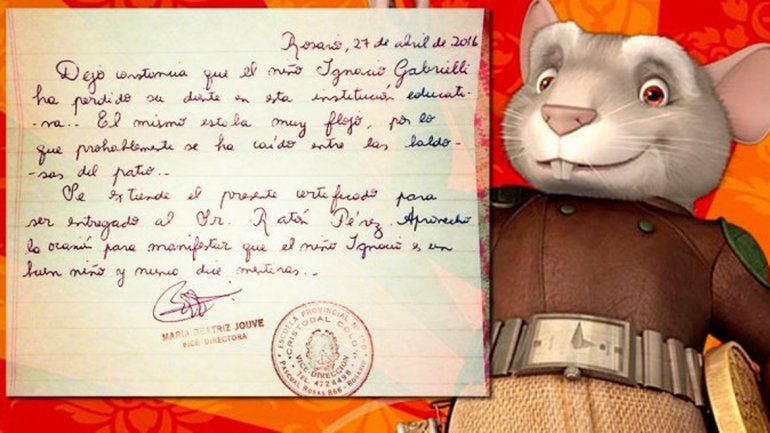 Rosario, 27 de abril de 2016
Dejo constancia que el niño Ignacio Gabrielli
ha perdido su diente en esta institución educati-
-va... El mismo estaba muy flojo, por lo
que probablemente se ha caído entre las baldo-
-sas del patio...
Se extiende el presente certificado para
ser entregado al Sr. Ratón Pérez. Aprovecho
la ocasión para manifestar que el niño Ignacio es un
buen niño y nunca dice mentiras...
MARIA BEATRIZ JOUVE
VICE DIRECTORA
ESCUELA PROVINCIAL N°
CRISTOBAL COLON
VICE-DIRECCION
TEL. 4724498
PASCUAL ROSAS 866 - ROSARIO